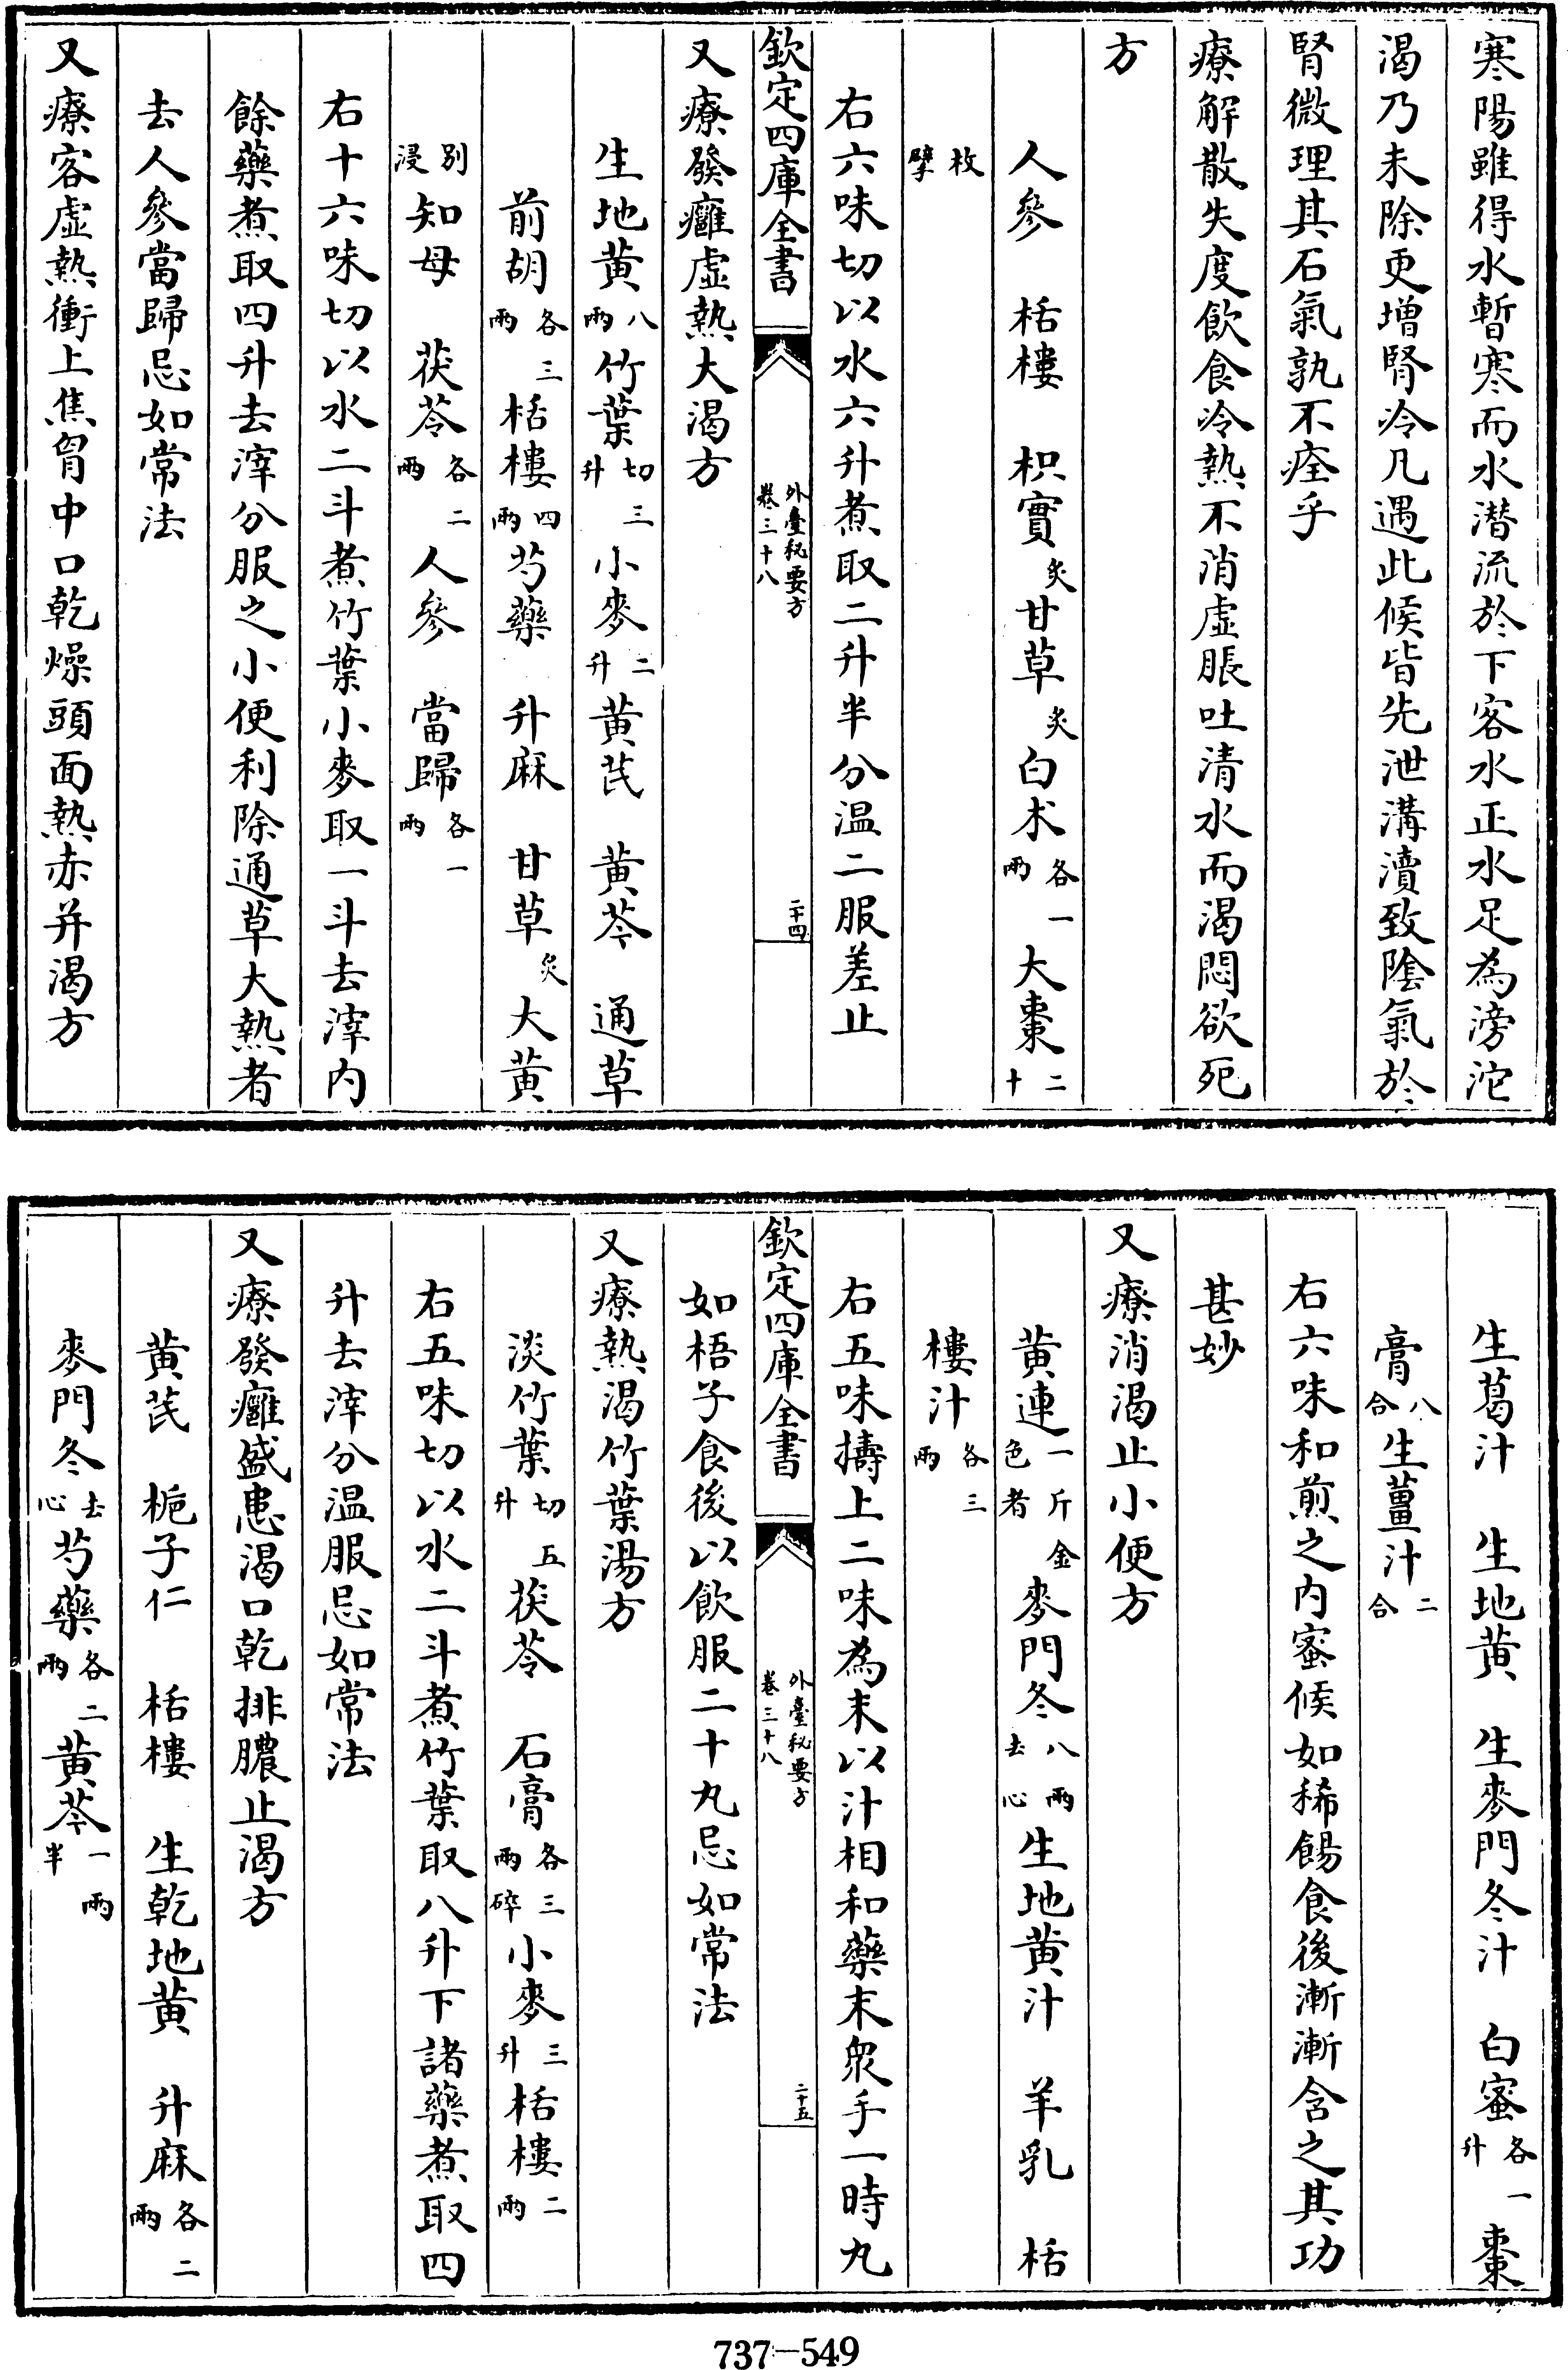 寒陽雖得水暫寒而水潛流於下客水正水足為滂沱
渴乃未除更增腎冷凡遇此候皆先泄溝瀆致陰氣於
腎微理其石氣孰不痊乎
療解散失度飲食冷熱不消虛脹吐清水而渴悶欲死
方
人參　栝樓　枳實炙甘草炙白朮各一兩大棗二十
枚擘
右六味切以水六升煮取二升半分温二服差止
欽定四庫全書　外臺秘要方卷三十八　二十四
又療發癰虛熱大渴方
生地黄八兩竹葉切三升小麥二升黄芪　黄芩　通草
前胡各三兩栝樓四兩芍藥　升麻　甘草炙大黄
別浸知母　茯苓各二兩人參　當歸各一兩
右十六味切以水二斗煮竹葉小麥取一斗去滓内
餘藥煮取四升去滓分服之小便利除通草大熱者
去人參當歸忌如常法
又療客虛熱衝上焦胷中口乾燥頭面熱赤并渴方
生葛汁　生地黄　生麥門冬汁　白蜜各一升棗
膏八合生薑汁二合
右六味和煎之内蜜候如稀餳食後漸漸含之其功
甚妙
又療消渴止小便方
黄連一斤金色者麥門冬八兩去心生地黄汁　羊乳　栝
樓汁各三兩
右五味擣上二味為末以汁相和藥末衆手一時丸
欽定四庫全書　外臺秘要方卷三十八　二十五
如梧子食後以飲服二十丸忌如常法
又療熱渴竹葉湯方
淡竹葉切五升茯苓　石膏各三兩碎小麥三升栝樓二兩
右五味切以水二斗煮竹葉取八升下諸藥煮取四
升去滓分温服忌如常法
又療發癰盛患渴口乾排膿止渴方
黄芪　梔子仁　栝樓　生乾地黄　升麻各二兩
麥門冬去心芍藥各二兩黄芩一兩半
737-549